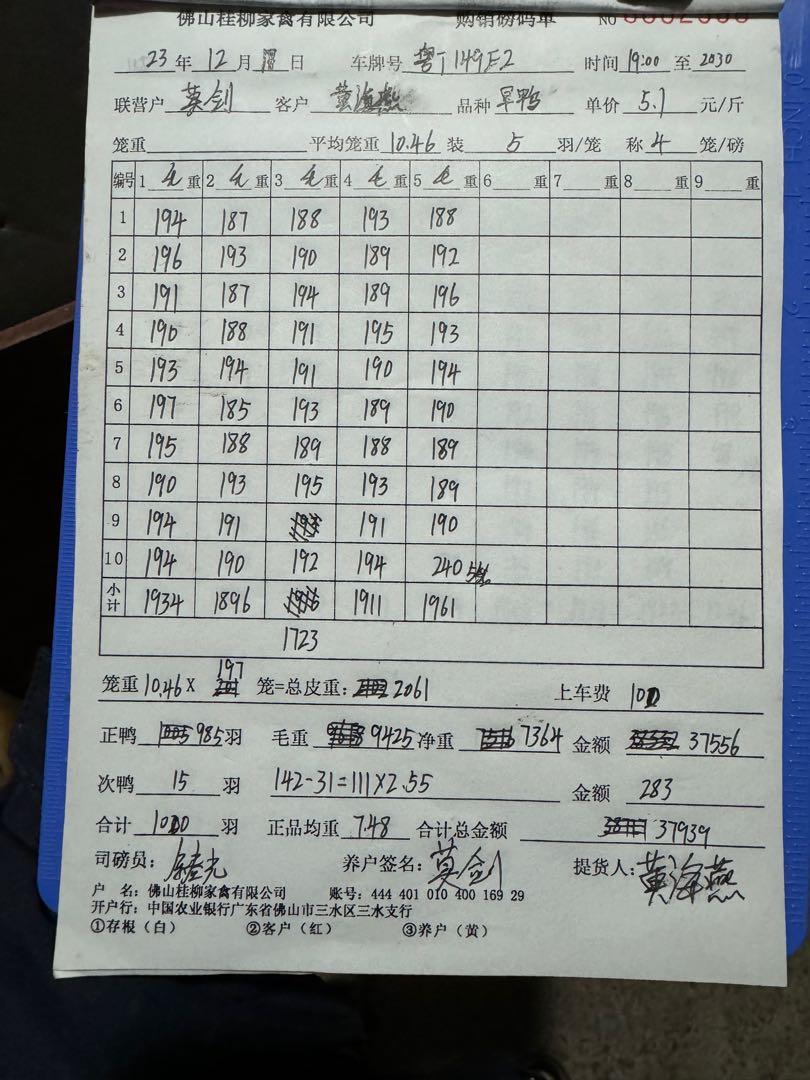 佛山桂柳家禽有限公司 购销磅码单 NO
23年12月 日 车牌号 粤J149E2 时间19:00至2030
联营户 莫剑 客户 黄海燕 品种 旱鸭 单价 5.1 元/斤
笼重 平均笼重 10.46 装 5 羽/笼 称 4 笼/磅
编号 1 毛 重 2 毛 重 3 毛 重 4 毛 重 5 毛 重 6 重 7 重 8 重 9 重
1 194 187 188 193 188
2 196 193 190 189 192
3 191 187 194 189 196
4 190 188 191 195 193
5 193 194 191 190 194
6 197 185 193 189 190
7 195 188 189 188 189
8 190 193 195 193 189
9 194 191 191 190
10 194 190 192 194 240
小计 1934 1896 1911 1961
1723
笼重 10.46 X 197 笼=总皮重: 2061 上车费 100
正鸭 985 羽 毛重 9425 净重 7364 金额 37556
次鸭 15 羽 142-31=111X2.55 金额 283
合计 1000 羽 正品均重 7.48 合计总金额 37939
司磅员: 养户签名: 莫剑 提货人: 黄海燕
户 名: 佛山桂柳家禽有限公司 账号: 444 401 010 400 169 29
开户行: 中国农业银行广东省佛山市三水区三水支行
①存根(白) ②客户(红) ③养户(黄)